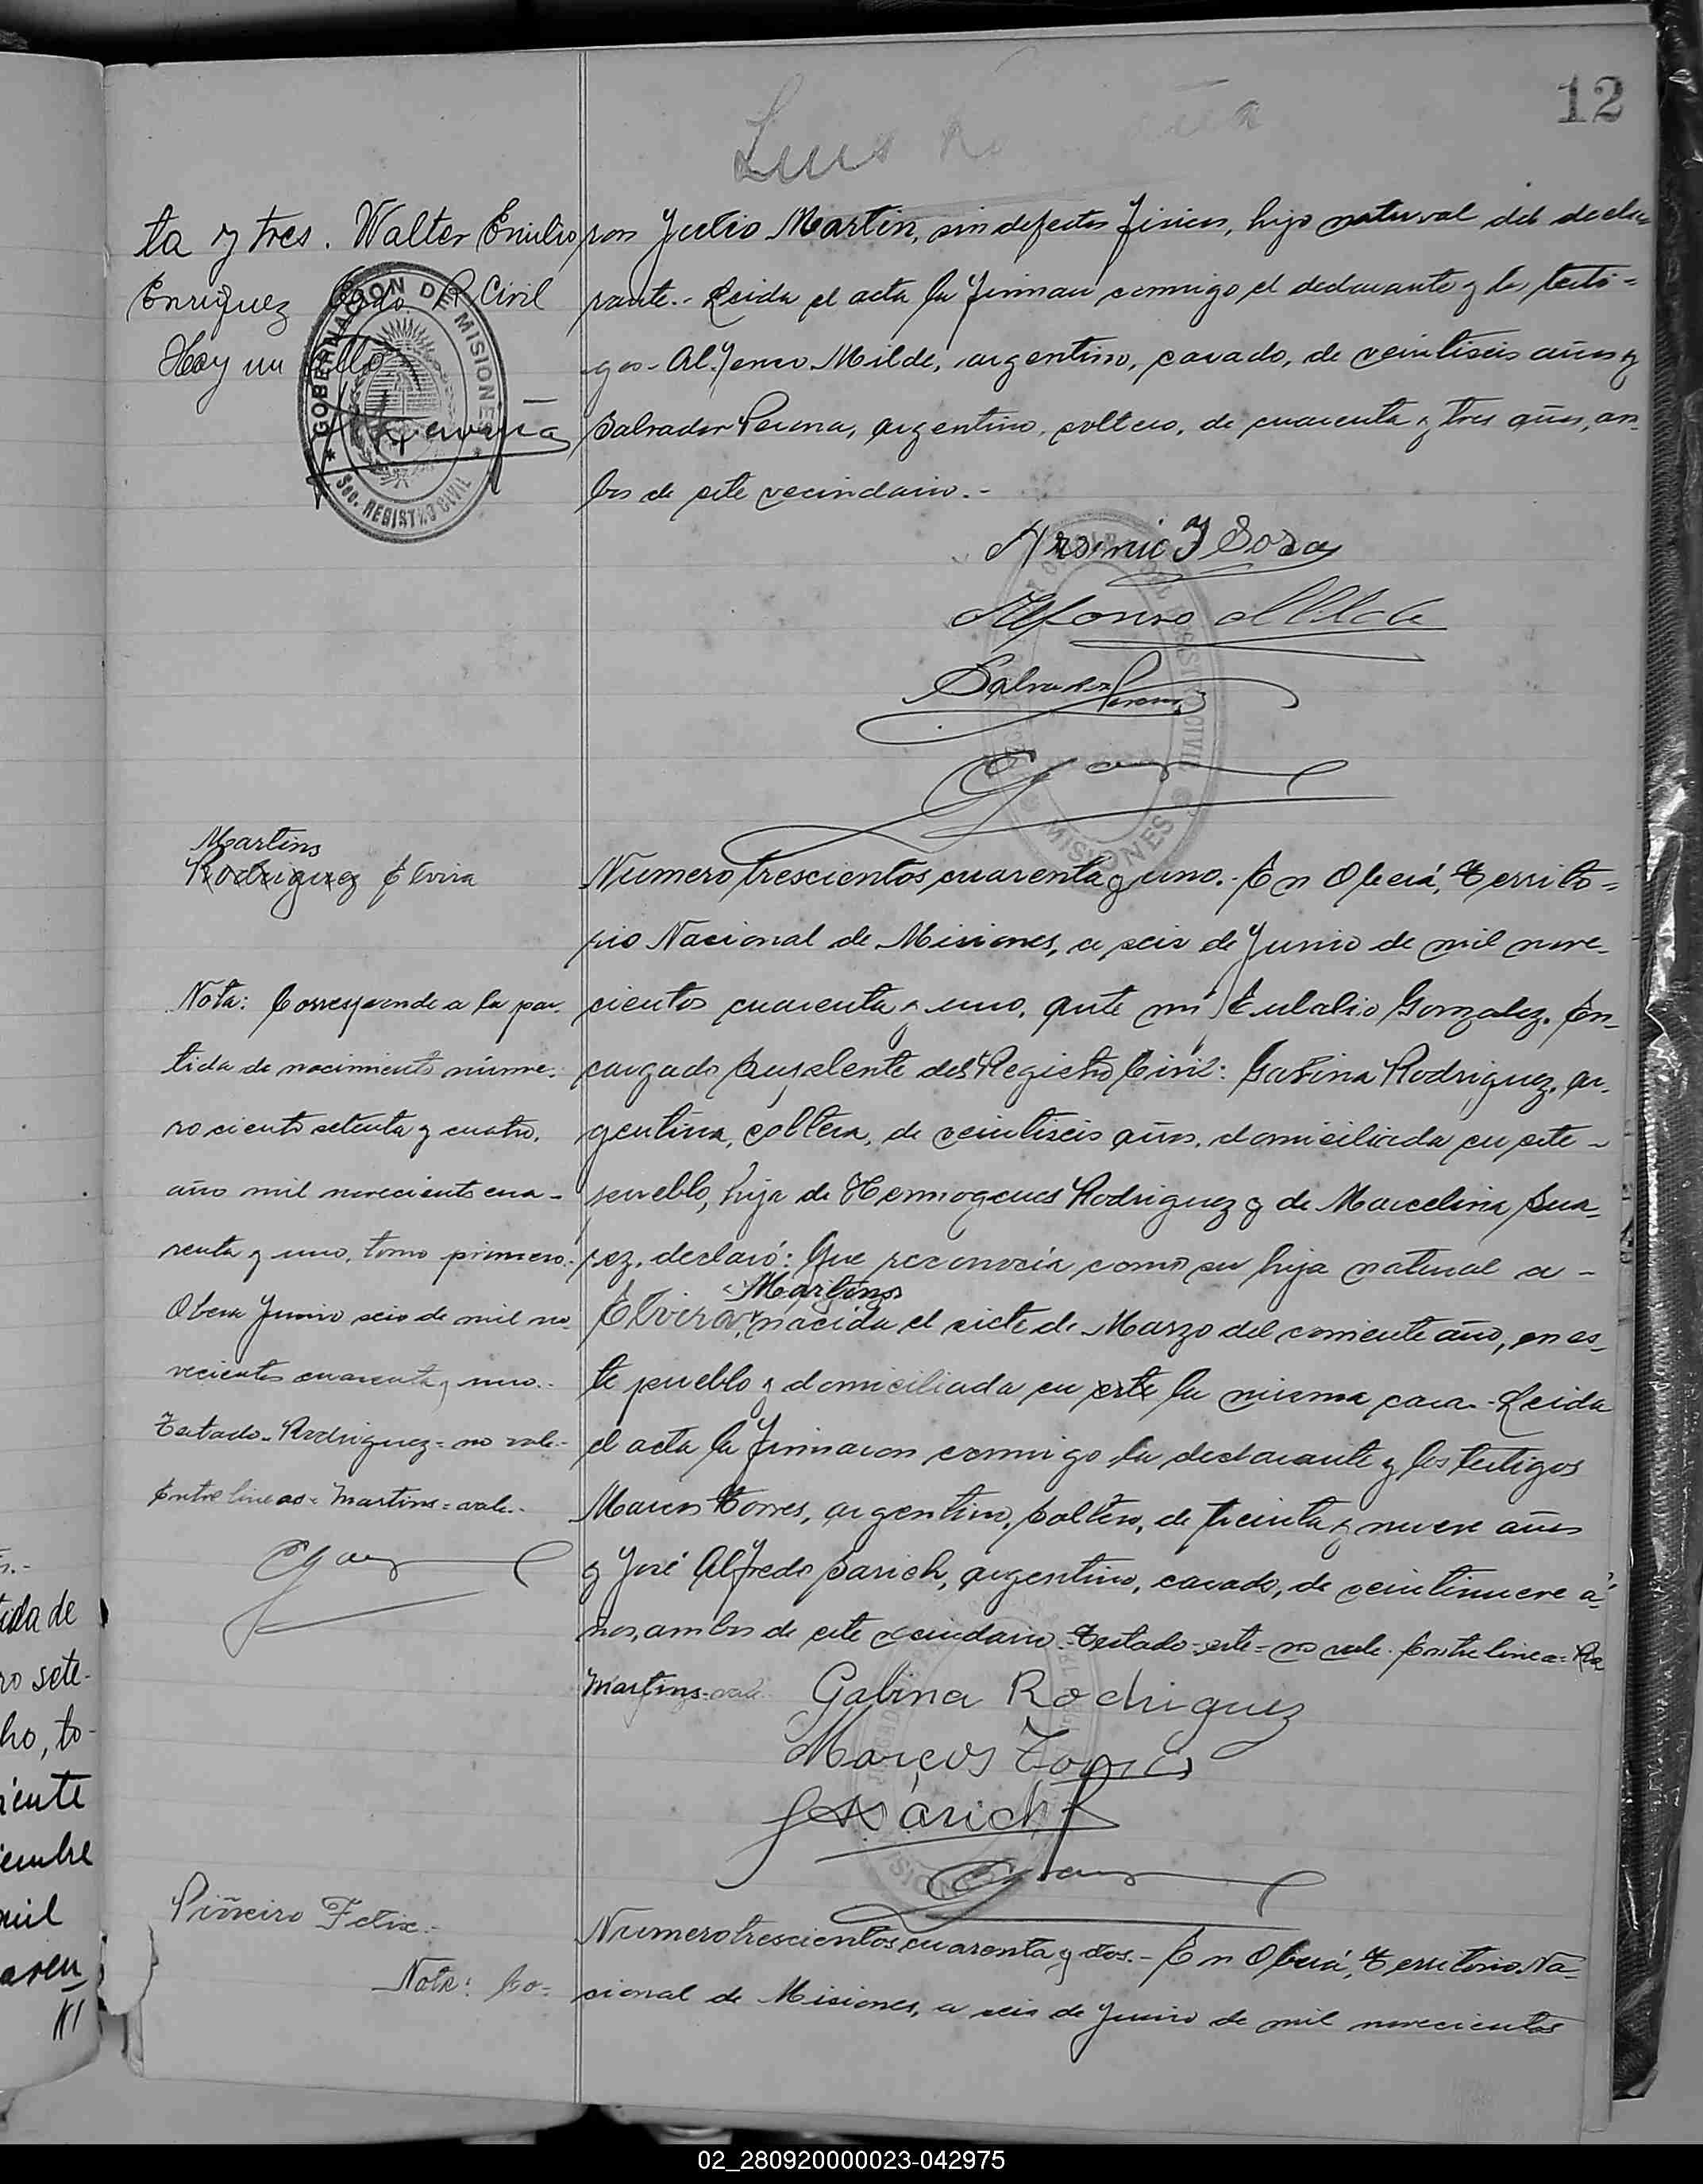 12
Luis
ta y tres. Walter Emilio
Enriquez Enc̃do. R. Civil
Hay un sello
GOBERNACION DE MISIONES
Sec. REGISTRO CIVIL
ron Julio Martin, sin defectos fisicos, hijo natural del decla-
rante.- Leida el acta la firman conmigo el declarante y los testi=
gos- Alfonso Milde, argentino, casado, de veintiseis años y
Salvador Perona, argentino, soltero, de cuarenta y tres años, am-
bos de este vecindario.-
Arsenio J Sosa
Alfonso Milde
Salvador Perona
MISIONES
Martins
Rodriguez Elvira
Nota: Corresponde a la par-
tida de nacimiento núme-
ro ciento setenta y cuatro,
año mil novecientos cua-
renta y uno, tomo primero.-
Obera Junio seis de mil no-
vecientos cuarenta y uno.-
Testado- Rodriguez= no vale.-
Entre lineas= Martins= vale.-
Numero trescientos cuarenta y uno.- En Oberá, Territo=
rio Nacional de Misiones, a seis de Junio de mil nove-
cientos cuarenta y uno, ante mi Eulalio Gonzalez, En-
cargado Suplente del Registro Civil: Gabina Rodriguez, ar-
gentina, soltera, de veintiseis años, domiciliada en este -
pueblo, hija de Hermogenes Rodriguez y de Marcelina Sua-
rez, declaró: Que reconocia como su hija natural a -
Martins
Elvira, nacida el siete de Marzo del corriente año, en es-
te pueblo y domiciliada en este la misma casa.- Leida
el acta la firmaron conmigo la declarante y los testigos
Marcos Torres, argentino, soltero, de treinta y nueve años
y José Alfredo Sarich, argentino, casado, de veintinueve a-
ños, ambos de este vecindario.- Testado- este- no vale. Entre linea=
Martins- vale.
Gabina Rodriguez
Marcos Torres
Sarich
Piñeiro Felix.-
Nota: Co=
Numero trescientos cuarenta y dos.- En Oberá, Territorio Na-
cional de Misiones, a seis de Junio de mil novecientos
ida de
ro sete-
ho, to-
iente
iembre
mil
aren
02_280920000023-042975